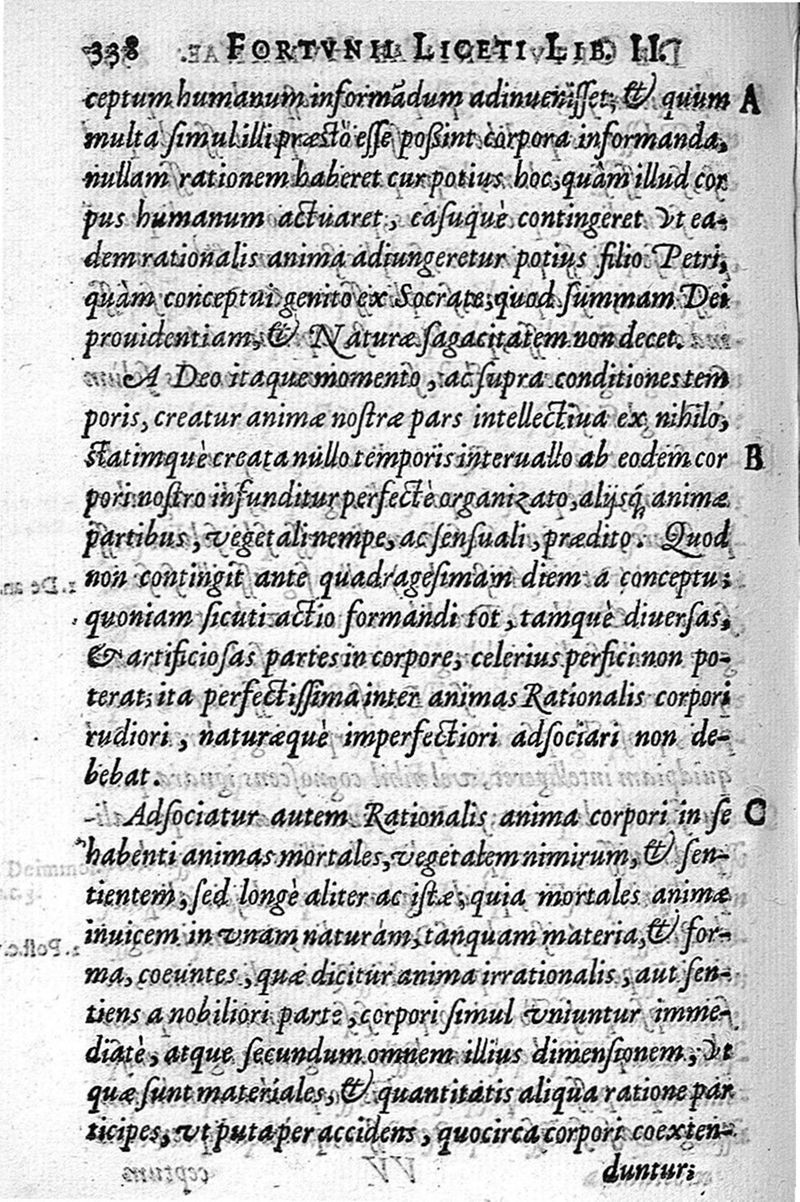 338 FORTVNII LICETI LIB. II.
ceptum humanum informādum adinuenisset; & quum A
multa simul illi præstò esse possint corpora informanda,
nullam rationem haberet cur potius hoc, quàm illud cor
pus humanum actuaret, casuquè contingeret vt ea-
dem rationalis anima adiungeretur potius filio Petri,
quàm conceptui genito ex Socrate; quod summam Dei
prouidentiam, & Naturæ sagacitatem non decet.
A Deo itaque momento, ac supra conditiones tem
poris, creatur animæ nostræ pars intellectiua ex nihilo,
statimquè creata nullo temporis interuallo ab eodem cor B
pori nostro infunditur perfectè organizato, alijsq; animæ
partibus, vegetali nempe, ac sensuali, prædito. Quod
non contingit ante quadragesimam diem a conceptu;
quoniam sicuti actio formandi tot, tamquè diuersas,
& artificiosas partes in corpore, celerius perfici non po-
terat; ita perfectissima inter animas Rationalis corpori
rudiori, naturæquè imperfectiori adsociari non de-
bebat.
Adsociatur autem Rationalis anima corpori in se C
habenti animas mortales, vegetalem nimirum, & sen-
tientem; sed longè aliter ac istæ; quia mortales animæ
inuicem in vnam naturam, tanquam materia, & for-
ma, coeuntes, quæ dicitur anima irrationalis, aut sen-
tiens a nobiliori parte, corpori simul vniuntur imme-
diatè, atque secundum omnem illius dimensionem, vt
quæ sunt materiales, & quantitatis aliqua ratione par
ticipes, vt puta per accidens, quocirca corpori coexten-
duntur;